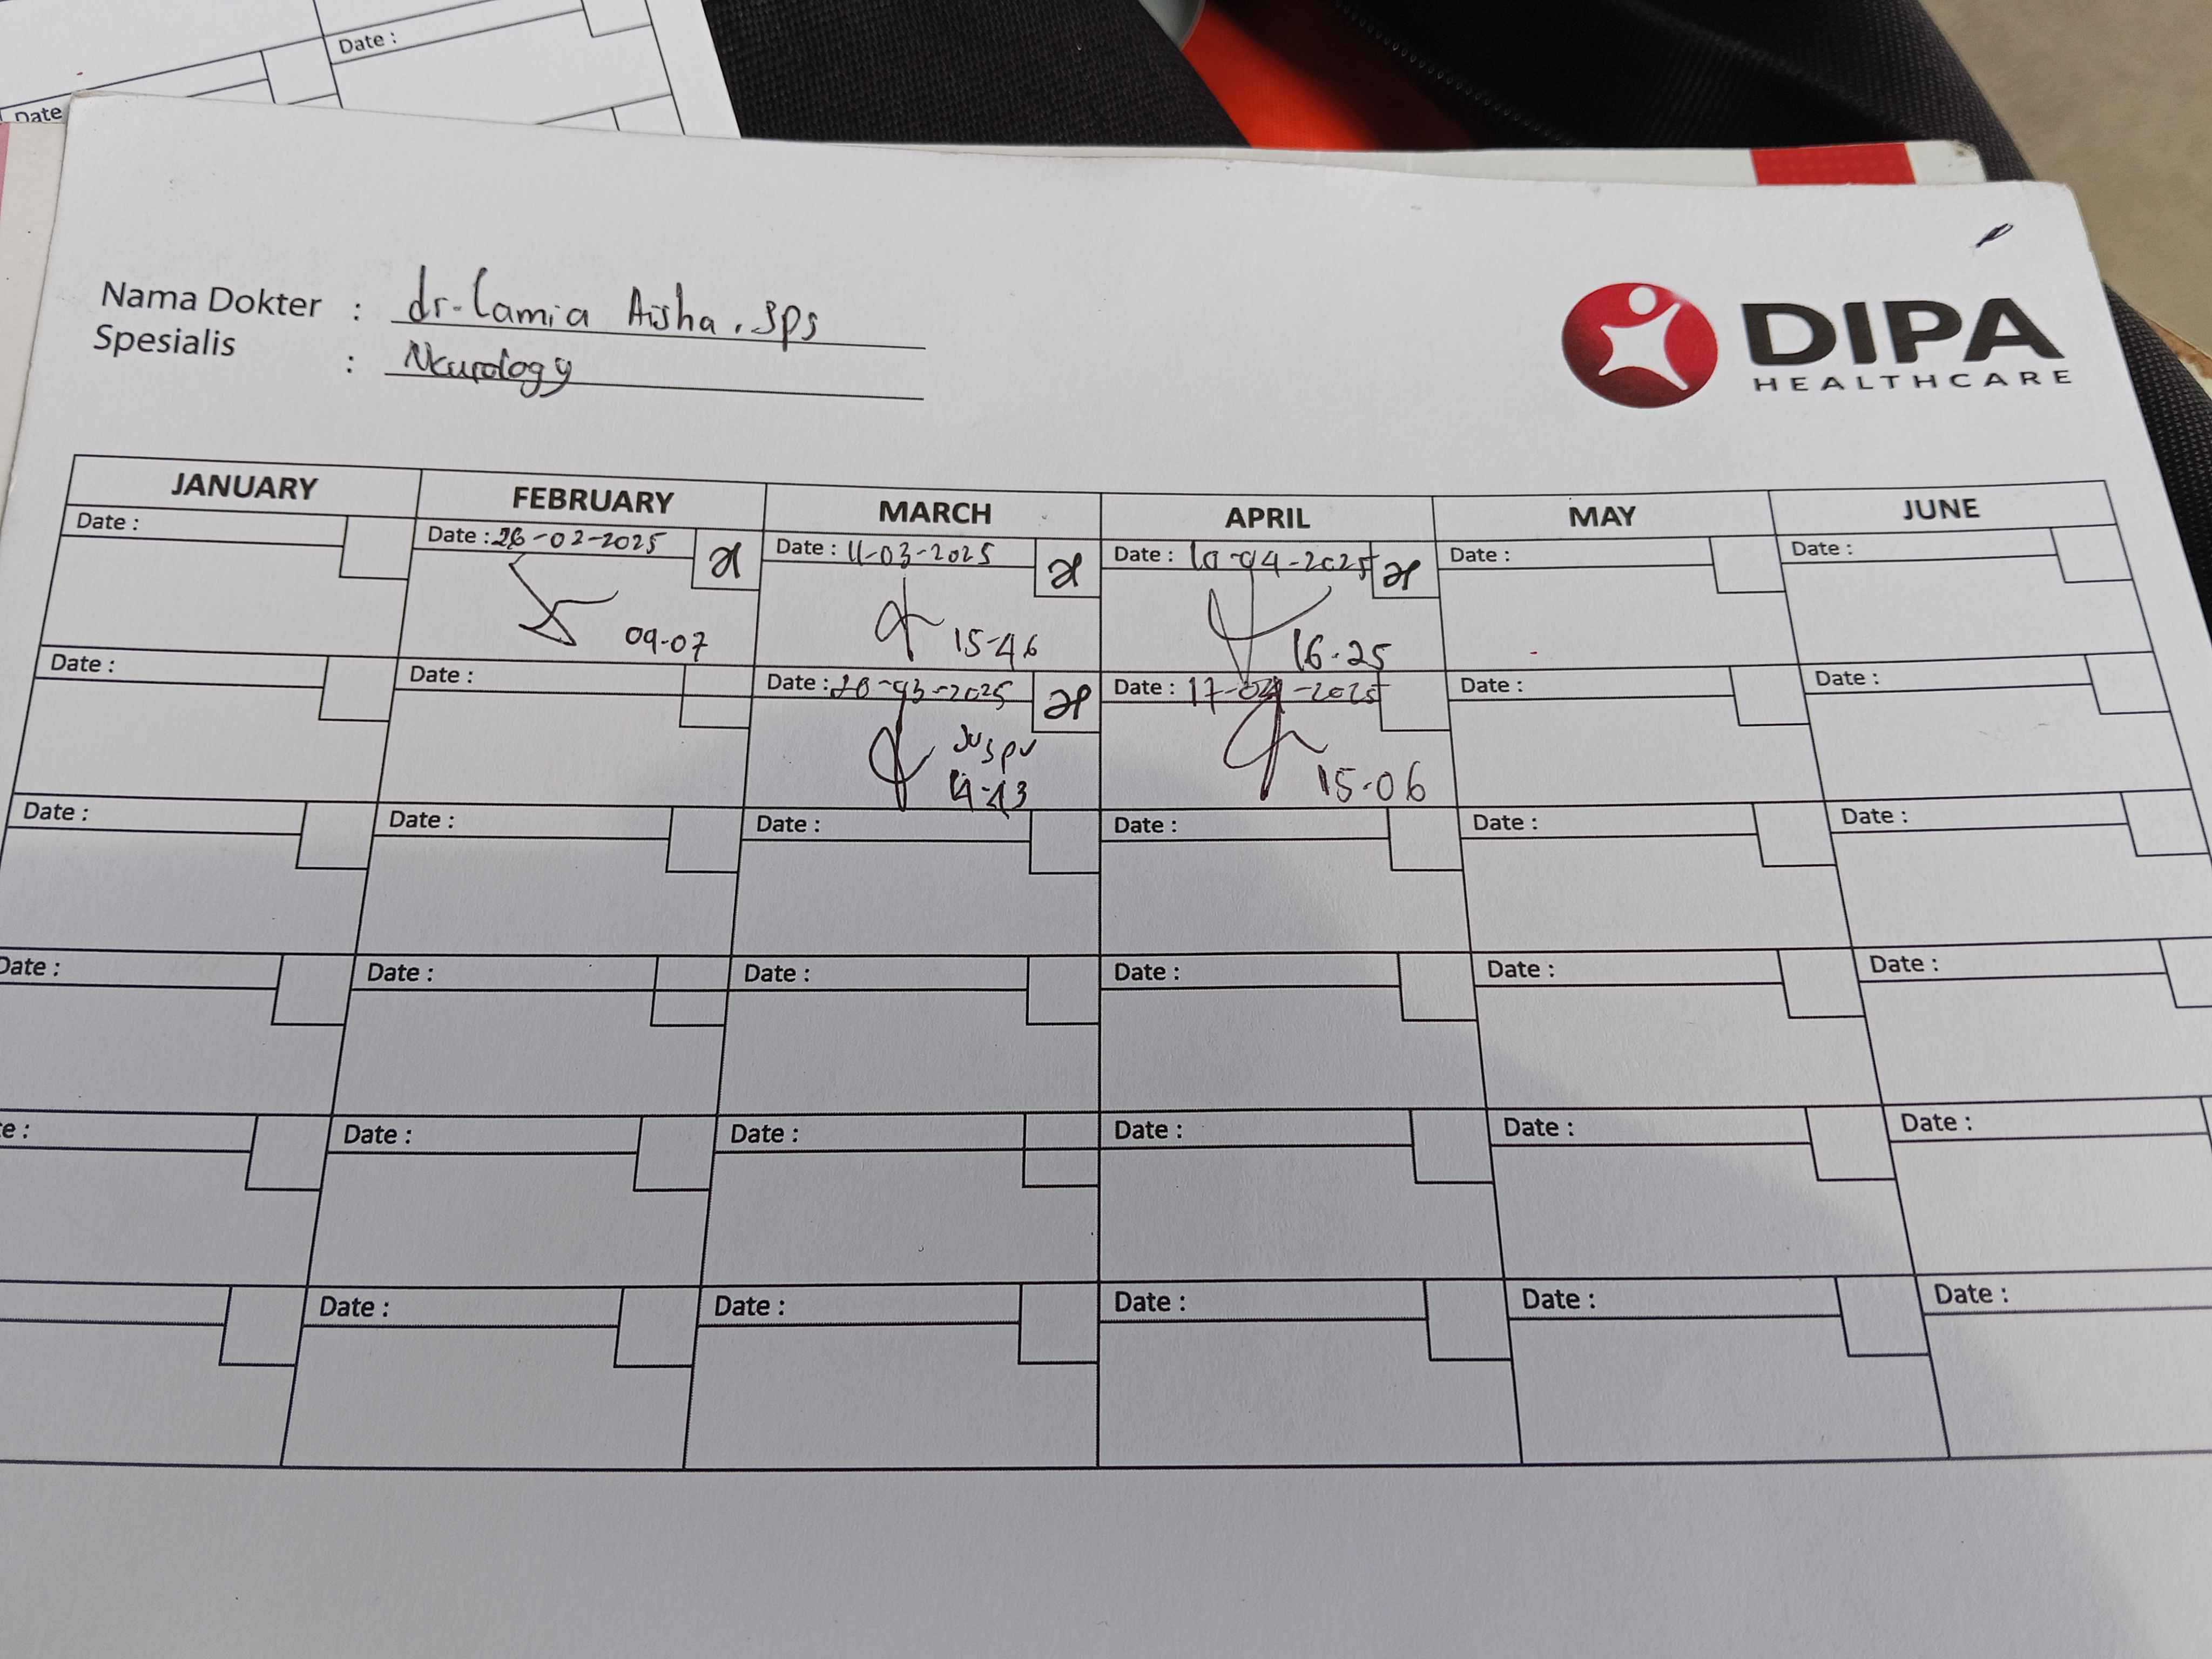 Date :
Date
Nama Dokter : dr. Lamia Aisha, SpS
Spesialis : Neurology
DIPA
HEALTHCARE
JANUARY FEBRUARY MARCH APRIL MAY JUNE
Date : Date : 26-02-2025 Date : 11-03-2025 Date : 10-04-2025 Date : Date :
09-07 15-46 16-25
Date : Date : Date : 20-03-2025 Date : 17-04-2025 Date : Date :
15-06
Date : Date : Date : Date : Date : Date :
Date : Date : Date : Date : Date : Date :
e : Date : Date : Date : Date : Date :
Date : Date : Date : Date : Date :